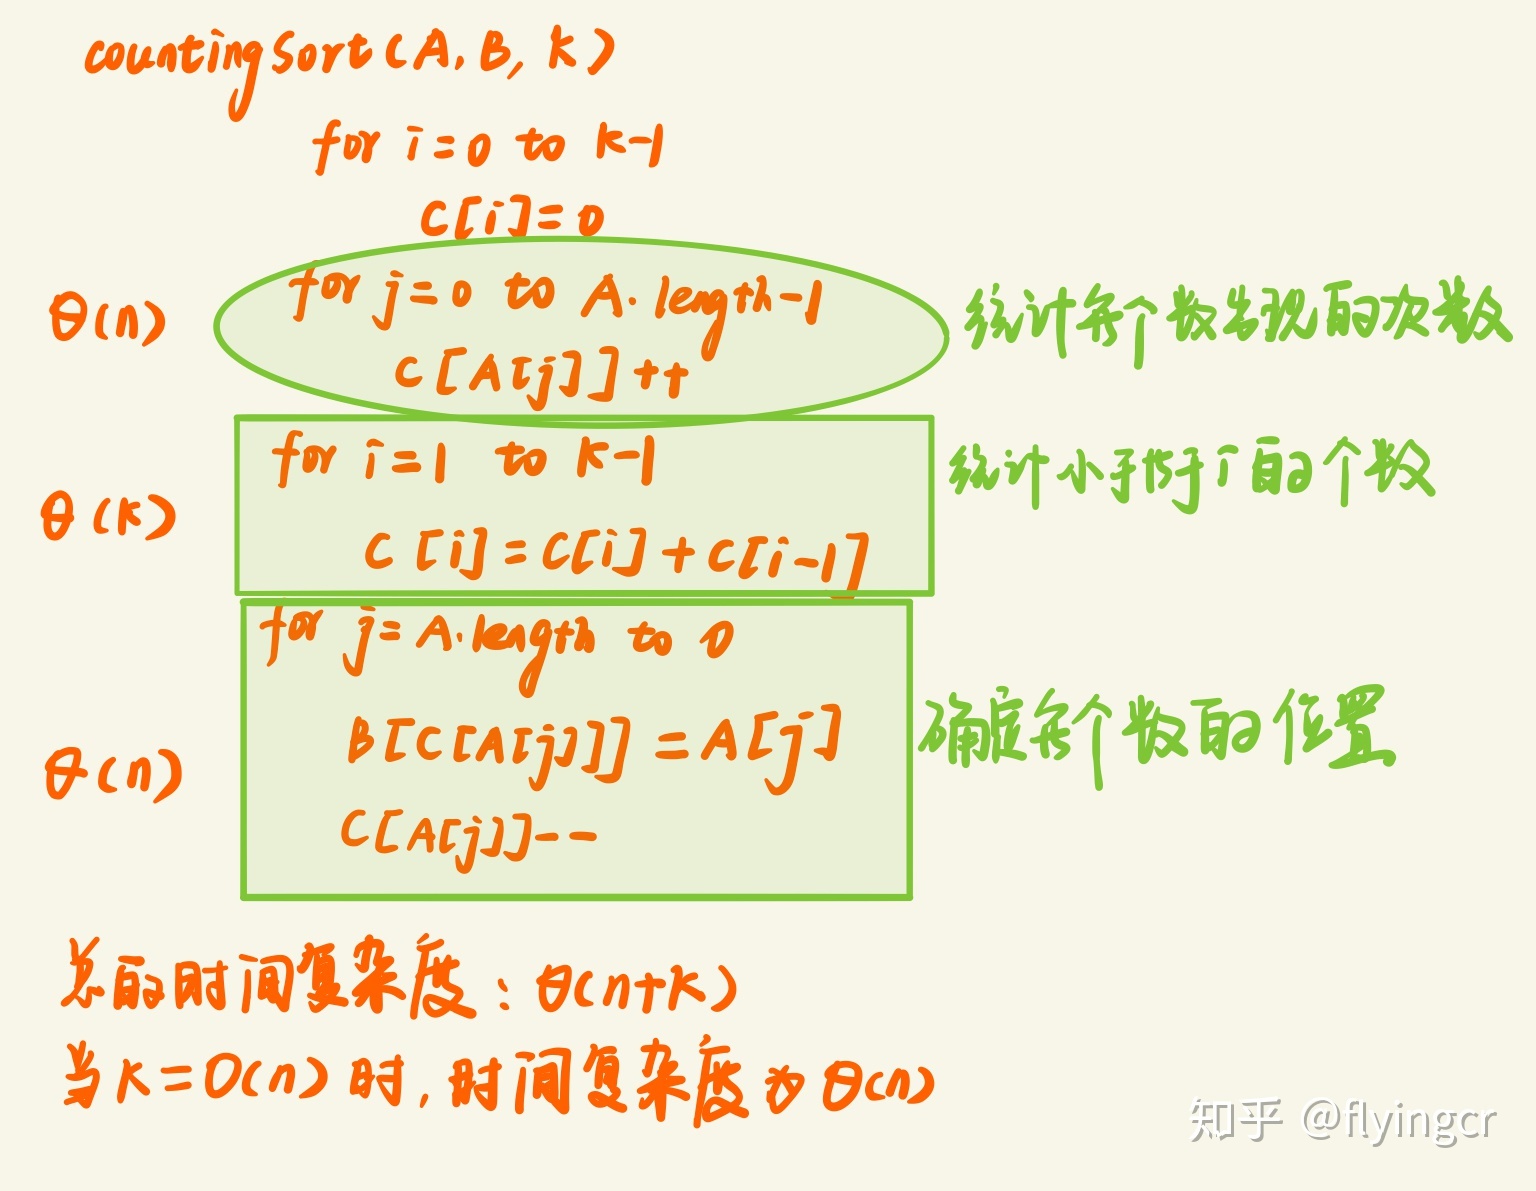 countingSort(A, B, K)
for i=0 to k-1
C[i]=0
θ(n)
for j=0 to A.length-1
C[A[j]]++
统计每个数出现的次数
θ(k)
for i=1 to k-1
C[i]=C[i]+C[i-1]
统计小于等于i的个数
θ(n)
for j=A.length to 0
B[C[A[j]]]=A[j]
C[A[j]]--
确定每个数的位置
总的时间复杂度：θ(n+k)
当K=O(n)时，时间复杂度为θ(n)
知乎 @flyingcr